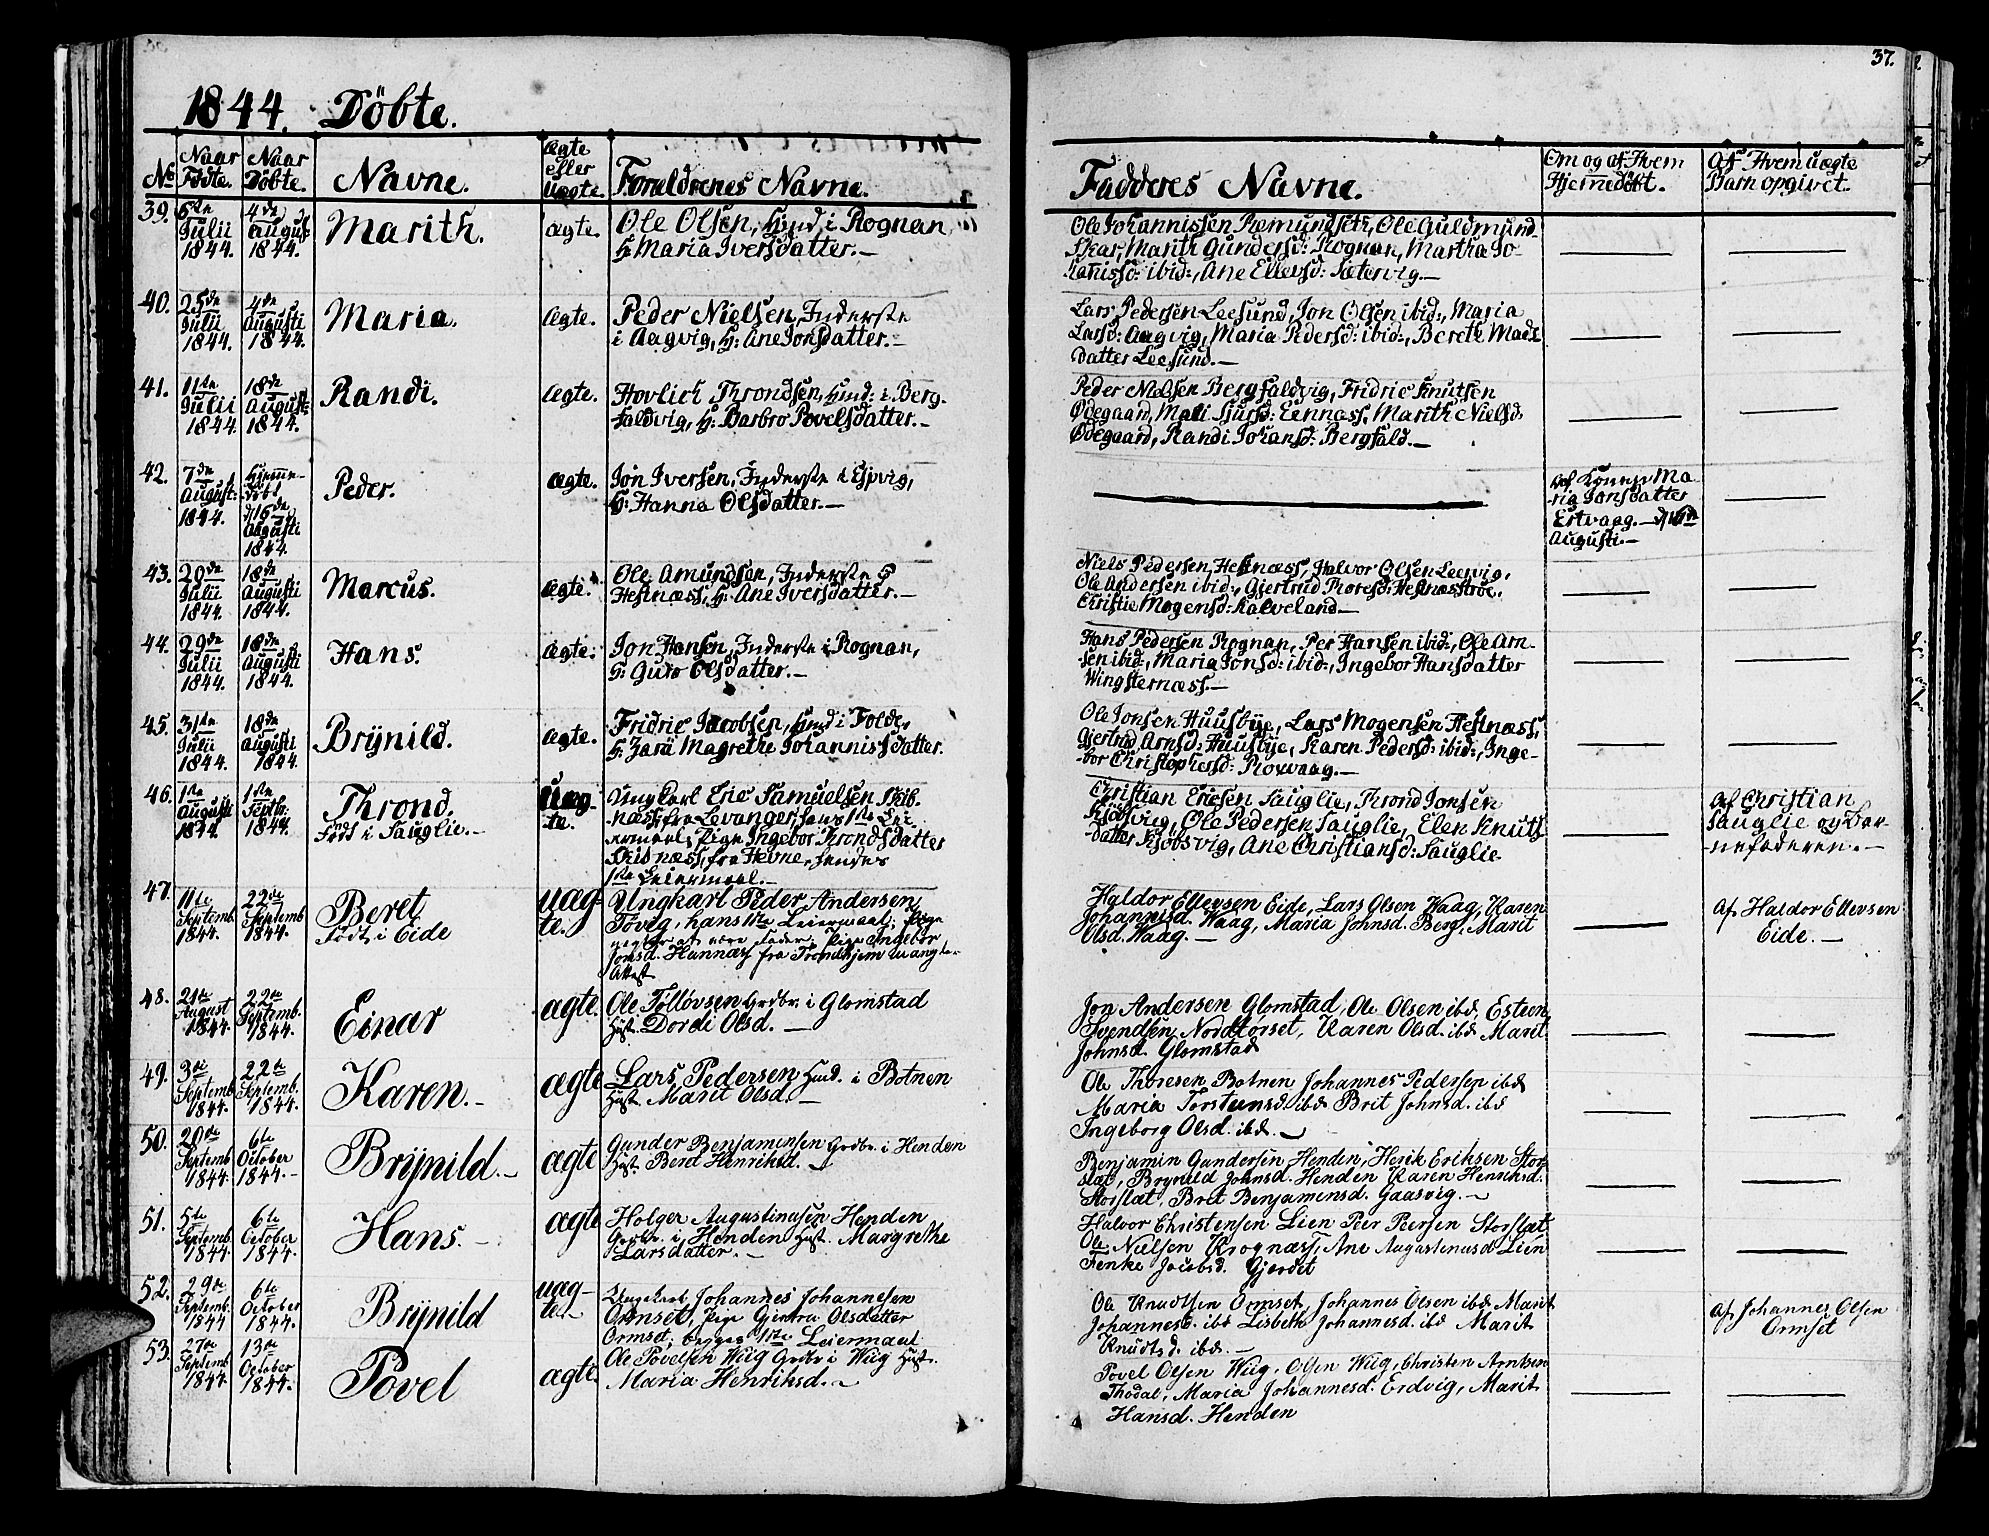 37.
1844. Döbte.
No
Naar Födte.
Naar Döbte.
Navne.
Ægte eller Uægte.
Forældrenes Navne.
Faddernes Navne.
Om og af Hvem Hjemedöbt.
Af Hvem uægte Barn opgivet.
39. 6te Julii 1844. 4de August 1844. Marith. ægte.
Ole Olsen, Huusd i Rognan
H: Maria Iversdatter.—
Ole Johannissen Remundset, Ole Guldmund-
skar, Marith Gundersd: Rognan, Martha Jo-
hanissd: ibid:, Ane Ellevsd: Sætervig.—
40. 25de Julii 1844. 4de Augusti 1844. Maria. ægte.
Peder Nielsen, Inderste
i Aagvig, H: Ane Jonsdatter.—
Lars Pedersen Leesund, Jon Olsen ibid:, Maria
Larsd: Aagvig, Maria Pedersd: ibid:, Bereth Mads
datter Leesund.—
41. 11te Julii 1844. 18de August: 1844. Randi. ægte.
Hovlich Throndsen, Huusd: i Berg-
faldvig, H: Barbro Povelsdatter.—
Peder Nielsen Bergfaldvig, Fridric Knutsen
Ødegaard, Mali Sjursd: Eennæss, Marith Nielsd
Ødegaard, Randi Johansd: Bergfald.—
42. 7de August: 1844. Hjemme-döbt d 16de Augusti 1844. Peder. ægte.
Jon Iversen, Inderste i Espvig,
H: Hanna Olsdatter.—
Af Konen Ma-
ria Jonsdatter
Ertvaag.— d
Augusti.—
43. 20de Julii 1844. 18de Augusti 1844. Marcus. ægte.
Ole Amundsen, Inderste
Hestnæss, H: Ane Iversdatter.—
Niels Pedersen Hestnæss, Halvor Olsen Leervig,
Ole Andersen ibid:, Gjertrud Thoresd: Hestnæsstrøe,
Christie Mogensd: Kalveland.—
44. 29de Julii 1844. 18de Augusti 1844. Hans. ægte.
Jon Hansen, Inderste i Rognan,
H: Guro Olsdatter.—
Hans Pedersen Rognan, Per Hansen ibid:, Ole Arn-
sen ibid:, Maria Jonsd: ibid:, Ingebor Hansdatter
Wingsternæss.—
45. 31te Julii 1844. 18de Augusti 1844. Brÿnild. ægte.
Fridric Jacobsen, Huusd i Folde,
H: Zara Magrethe Johannissdatter.
Ole Jonsen Huusbÿe, Lars Mogensen Hestnæss,
Gjertrud Arnsd: Huusbÿe, Karen Pedersd: ibid:, Inge-
bor Christophersd: Roxvaag.—
46. 1te Augusti 1844. 1te Septbr. 1844. Thrond. Født i Sauglie.— Uæg-te.
Ungkarl Eric Samuelsen Skib-
næss fra Levanger, hans 1te Lei-
ermaal, Pige Ingebor Throndsdatter
Skibnæss, fra Hevne, hendes
1te Leiermaal.—
Christian Ericsen Sauglie, Thrond Jonsen
Kjöbsvig, Ole Pedersen Sauglie, Elen Knuts-
datter Kjöbsvig, Ane Christiansd: Sauglie
Af Christian
Sauglie og Bar-
nefaderen.—
47. 11te Septemb. 1844. 22de Septemb 1844. Beret Født i Eide uæg-te.
Ungkarl Peder Andersen
Tøvig, hans 1te Leiermaal; Pige
Ingebor
Jonsd. Hannæs fra Trondhjem mangler
Attest
Haldor Ellevsen Eide, Lars Olsen Waag, Karen
Johannesd. Waag, Maria Johnsd. Berg, Marit
Olsd. Waag.—
Af Haldor Ellevsen
Eide.—
48. 21de August 1844. 22de Septemb. 1844. Einar ægte.
Ole Tølløvsen Grdbr. i Glomstad
Hust. Dordi Olsd.—
Jon Andersen Glomstad, Ole Olsen ibd, Esten
Svendsen Nordtorset, Karen Olsd. ibd Marit
Johnsd Glomstad
49. 3de Septemb. 1844. 22de Septemb. 1844. Karen.— ægte
Lars Pedersen Huusd. i Botnen
Hust. Marit Olsd.—
Ole Thoresen Botnen Johannes Pedersen ibd
Maria Torstensd. ibd Brit Johnsd. ibd
Ingeborg Olsd. ibd.—
50. 20de Septemb 1844. 6te October 1844.— Brÿnild.— ægte
Gunder Benjaminsen Grdbr. i Henden
Hust. Beret Henriksd.—
Benjamin Gundersen Henden, Herik Eriksen Stor-
slæt, Brynild Johnsd. Henden Karen Henriksd.
Storslæt, Bret Benjamensd. Gaasvig.—
51. 5te Septemb. 1844 6te October 1844. Hans.— ægte
Holger Augustinusen Henden
Grdbr. i Henden Hust. Margrethe
Larsdatter.—
Halvor Christensen Lien Peer Peersen Storslæt
Ole Nielsen Krognæss, Ane Augustinusd Lien
Jenke Jacobsd. Gjerdet
52. 29de Septemb. 1844 6te October 1844. Brÿnild uæg-te
Ungekarl Johannes Johannesen
Ormset, Pige Gjertru Olsdatter
Ormset; begges 1te Leiermaal
Ole Knudtsen Ormset, Johannes Olsen ibd Marit
Johannesd. ibd Lisbeth Johannesd. ibd Marit
Knudtsd. ibd.—
Af Johannes Olsen
Ormset
53. 27de Septemb. 1844. 13de October 1844. Povel ægte.
Ole Povelsen Wiig Grdbr i Wiig Hust.
Maria Henriksd.—
Povel Olsen Wiig, Olsen Wiig, Christen Arntsen
Thodal, Maria Johannesd. Erdvig, Marit
Hansd. Henden